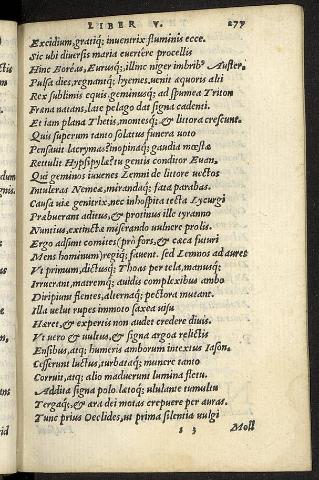 LIBER V. 277
Excidium, gratiq; inuentrix fluminis ecce.
Sic ubi diuersis maria euertêre procellis
Hinc Boreas, Eurusq; illinc niger imbribꝰ Auster.
Pulsa dies, regnantq; hyemes, uenit æquoris alti
Rex sublimis equis, geminusq; ad spumea Triton
Frena natans, late pelago dat signa cadenti.
Et iam plana Thetis, montesq; & littora crescunt.
Quis superum tanto solatus funera uoto
Pensauit lacrymas? inopinaq; gaudia mœstæ
Rettulit Hypsipylæ? tu gentis conditor Euan.
Qui geminos iuuenes Lemni de littore uectos
Intuleras Nemeæ, mirandaq; fata parabas.
Causa uiæ genitrix, nec inhospita tecta Lycurgi
Præbuerant aditus, & protinus ille tyranno
Nuntius, extinctæ miserando uulnere prolis.
Ergo adsunt comites (prô fors, & cæca futuri
Mens hominum) regiq; fauent. sed Lemnos ad aures
Vt primum, dictusq; Thoas per tela, manusq;
Irruerant, matremq; auidis complexibus ambo
Diripiunt flentes, alternaq; pectora mutant.
Illa uelut rupes immoto saxea uisu
Hæret, & expertis non audet credere diuis.
Vt uero & uultus, & signa argoa relictis
Ensibus, atq; humeris amborum intextus Iason.
Cesserunt luctus, turbataq; munere tanto
Corruit, atq; alio maduerunt lumina fletu.
Addita signa polo. latoq; ululante tumultu
Tergaq;, & æra dei motas crepuere per auras.
Tunc pius Oeclides, ut prima silentia uulgi
s 3 Moll